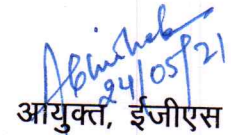 Abhishek
24/05/21
आयुक्त, ईजीएस